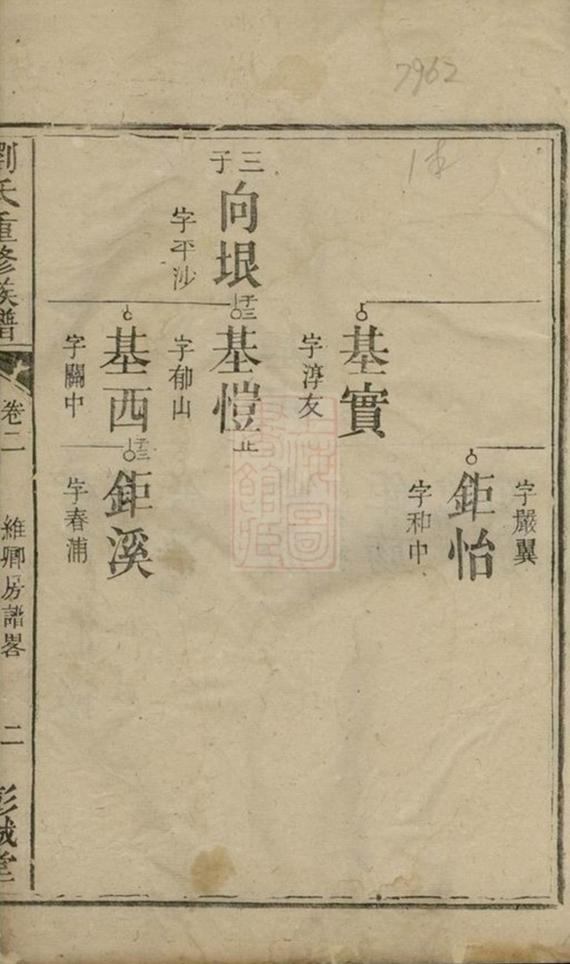 7962
1本
字嚴翼
鉅怡
字和中
基實
字淳友
三子
向垠
字平沙
基愷
止
字郁山
基西
字關中
鉅溪
字春浦
劉氏重修族譜
卷二
維卿房譜畧
二
彭城堂